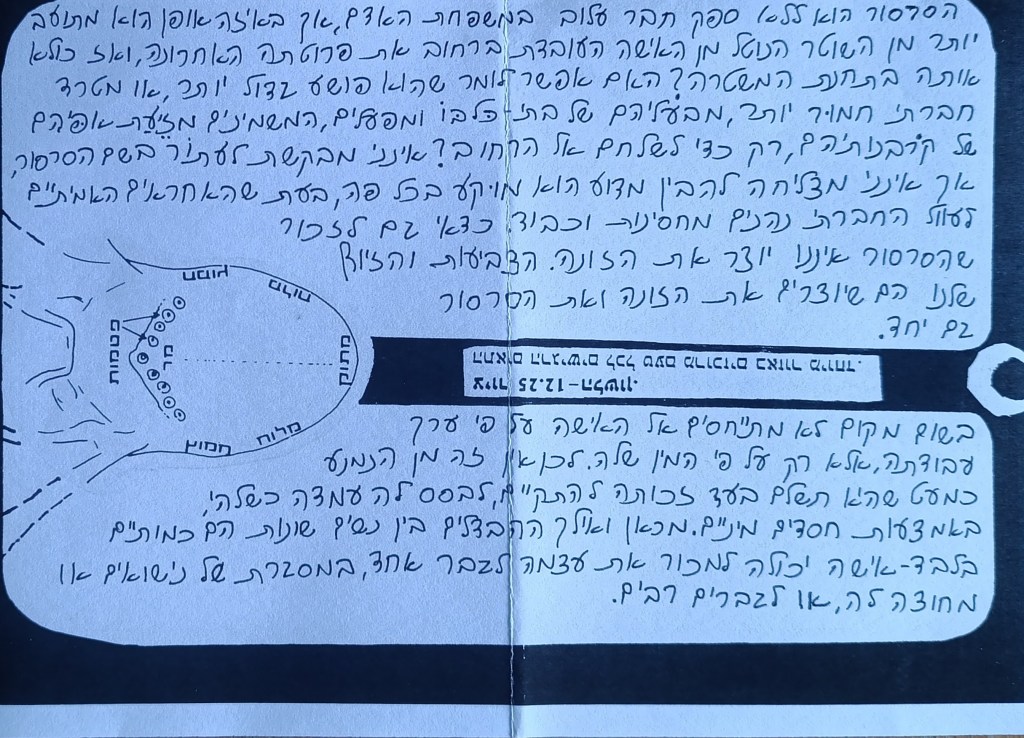 הסרסור הוא ללא ספק חבר עלוב במשפחת האדם, אך באיזה אופן הוא מתועב
יותר מן השוטר הנוטל מן האישה העובדת ברחוב את פרוטתה האחרונה, ואז כולא
אותה בתחנת המשטרה? האם אפשר לומר שהוא פושע גדול יותר, או מטרד
חברתי חמור יותר, מבעליהם של בתי-כלבו ומפעלים, המשמינים מזיעת אפיהם
של קורבנותיהם, רק כדי לשלחם אל הרחוב? אינני מבקשת לעתור בשם הסרסור,
אך אינני מצליחה להבין מדוע הוא מוקע בכל פה, בעת שהאחראים האמיתיים
לעוול החברתי נהנים מחסינות וכבוד. כדאי גם לזכור
שהסרסור איננו יוצר את הזונה. הצביעות והזיוף
שלנו הם שיוצרים את הזונה ואת הסרסור
גם יחד.
חמוץ
מלוח
מתוק
טועמים
גם
חמוץ
מלוח
ציור 12.25-הלשון.
התאים הרגישים לכל טעם מרוכזים באזור מיוחד.
בשום מקום לא מתייחסים אל האישה על פי ערך
עבודתה, אלא רק על פי המין שלה. לכן אין זה מן הנמנע
כמעט שהיא תשלם בעד זכותה להתקיים, לבסס לה עמדה כשלהי,
באמצעות חסדים מיניים. מכאן ואילך ההבדלים בין נשים שונות הם כמותיים
בלבד-אישה יכולה למכור את עצמה לגבר אחד, במסגרת של נישואים או
מחוצה לה, או לגברים רבים.